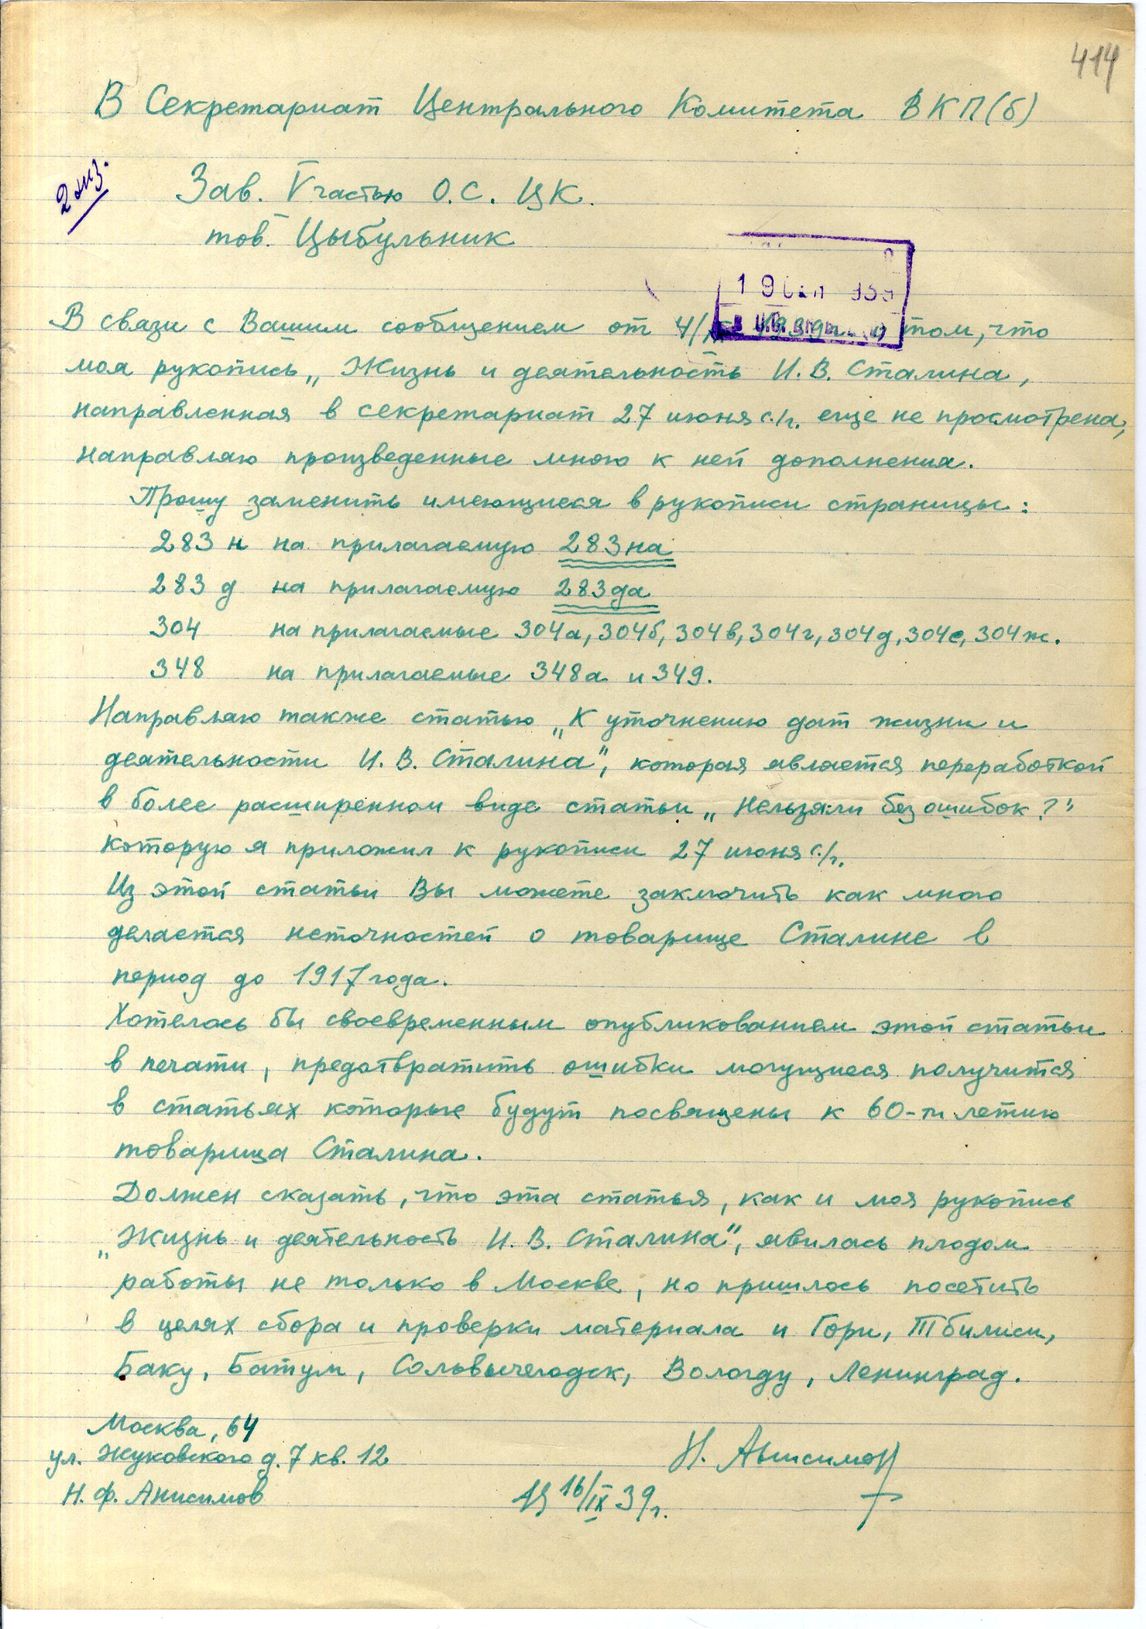 414
В Секретариат Центрального Комитета ВКП(б)
2 экз.
Зав. V частью О.С. ЦК.
тов. Цыбульник
В связи с Вашим сообщением от 4/ том, что
моя рукопись „Жизнь и деятельность И. В. Сталина,
направленная в секретариат 27 июня с/г. еще не просмотрена,
направляю произведенные мною к ней дополнения.
Прошу заменить имеющиеся в рукописи страницы:
283 н на прилагаемую 283на
283 д на прилагаемую 283да
304 на прилагаемые 304а, 304б, 304в, 304г, 304д, 304е, 304ж.
348 на прилагаемые 348а и 349.
Направляю также статью „К уточнению дат жизни и
деятельности И. В. Сталина", которая является переработкой
в более расширенном виде статьи „Нельзя ли без ошибок?"
которую я приложил к рукописи 27 июня с/г.
Из этой статьи Вы можете заключить как много
делается неточностей о товарище Сталине в
период до 1917 года.
Хотелось бы своевременным опубликованием этой статьи
в печати, предотвратить ошибки могущиеся получится
в статьях которые будут посвящены к 60-ти летию
товарища Сталина.
Должен сказать, что эта статья, как и моя рукопись
„Жизнь и деятельность И. В. Сталина", явилась плодом
работы не только в Москве, но пришлось посетить
в целях сбора и проверки материала и Гори, Тбилиси,
Баку, Батум, Сольвычегодск, Вологду, Ленинград.
Москва, 64
ул. Жуковского д. 7 кв. 12
Н. Ф. Анисимов
Н. Анисимов
16/IX 39г.